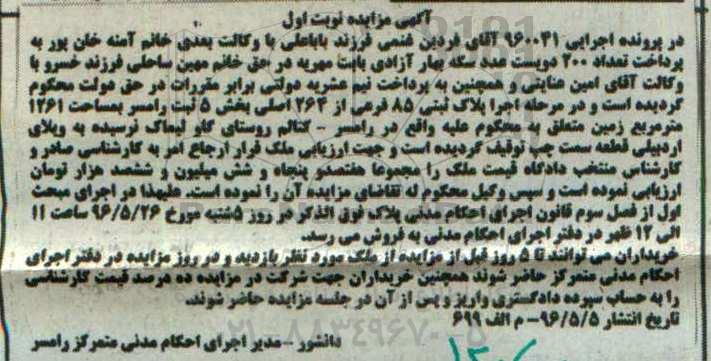 آگهی مزایده نوبت اول
در پرونده اجرایی ۹۶۰۰۳۱ آقای فردین غنمی فرزند باباعلی با وکالت بعدی خانم آمنه خان پور به
پرداخت تعداد ۲۰۰ دویست عدد سکه بهار آزادی بابت مهریه در حق خانم مهین ساحلی فرزند خسرو با
وکالت آقای امین عنایتی و همچنین به پرداخت نیم عشریه دولتی برابر مقررات در حق دولت محکوم
گردیده است و در مرحله اجرا پلاک ثبتی ۸۵ فرعی از ۲۶۴ اصلی بخش ۵ ثبت رامسر بمساحت ۱۲۶۱
مترمربع زمین متعلق به محکوم علیه واقع در رامسر - کتالم روستای گاو لیماک نرسیده به ویلای
اردبیلی قطعه سمت چپ توقیف گردیده است و جهت ارزیابی ملک قرار ارجاع امر به کارشناسی صادر و
کارشناس منتخب دادگاه قیمت ملک را مجموعا هفتصدو پنجاه و شش میلیون و ششصد هزار تومان
ارزیابی نموده است و سپس وکیل محکوم له تقاضای مزایده آن را نموده است. علیهذا در اجرای مبحث
اول از فصل سوم قانون اجرای احکام مدنی پلاک فوق الذکر در روز ۵شنبه مورخ ۹۶/۵/۲۶ ساعت ۱۱
الی ۱۲ ظهر در دفتر اجرای احکام مدنی به فروش می رسد.
خریداران می توانند تا ۵ روز قبل از مزایده از ملک مورد نظر بازدید و در روز مزایده در دفتر اجرای
احکام مدنی متمرکز حاضر شوند همچنین خریداران جهت شرکت در مزایده ده درصد قیمت کارشناسی
را به حساب سپرده دادگستری واریز و پس از آن در جلسه مزایده حاضر شوند.
تاریخ انتشار ۹۶/۵/۵- م الف ۶۹۹
دانشور - مدیر اجرای احکام مدنی متمرکز رامسر
۰۲۱-۸۸۳۴۹۶۷۰-۵